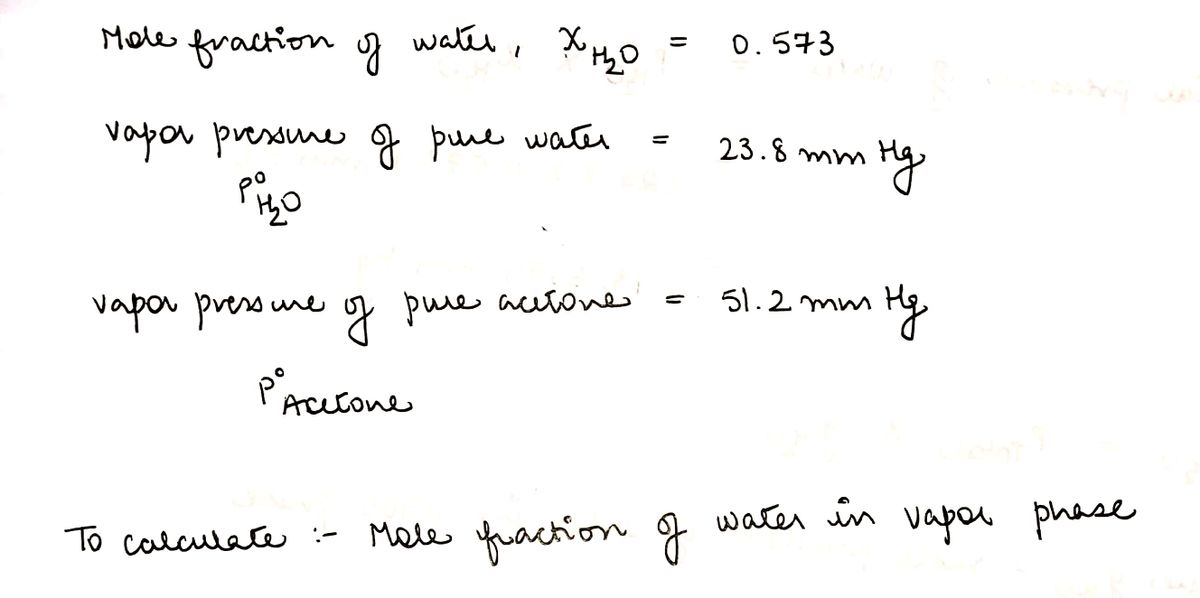 Mole fraction of water, X H2O = 0.573
vapor pressure of pure water = 23.8 mm Hg
P° H2O
vapor pressure of pure acetone = 51.2 mm Hg
P° Acetone
To calculate :- Mole fraction of water in vapor phase